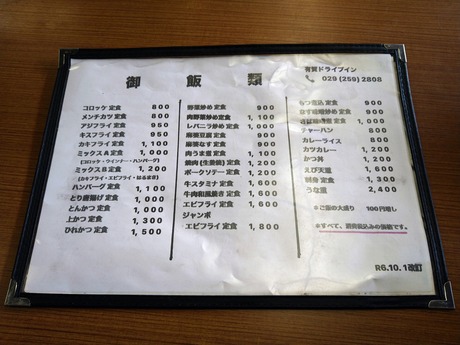 御飯類
有賀ドライブイン
029 (259) 2808
コロッケ 定食 800
メンチカツ 定食 900
アジフライ 定食 950
キスフライ 定食 950
カキフライ 定食 1,100
ミックスA 定食 1,000
(コロッケ・ウインナー・ハンバーグ)
ミックスB 定食 1,200
(カキフライ・エビフライ・はるまき)
ハンバーグ 定食 1,100
とり唐揚げ 定食 1,000
とんかつ 定食 1,000
上かつ 定食 1,300
ひれかつ 定食 1,500
野菜炒め 定食 900
肉野菜炒め 定食 1,100
レバニラ炒め 定食 1,000
麻婆豆腐 定食 900
麻婆なす 定食 900
肉うま煮 定食 1,100
焼肉(生姜焼) 定食 1,200
ポークソテー 定食 1,200
牛スタミナ 定食 1,100
牛肉和風焼き 定食 1,100
エビフライ 定食 1,600
ジャンボ
エビフライ 定食 1,800
もつ煮込 定食 900
なす味噌炒め 定食 900
さば味噌煮 定食 1,000
チャーハン 800
カレーライス 800
カツカレー 1,200
かつ丼 1,200
えび天重 1,600
刺身 定食 1,300
うな重 2,400
*ご飯の大盛り 100円増し
*すべて、消費税込みの価格です。
R6.10.1改訂